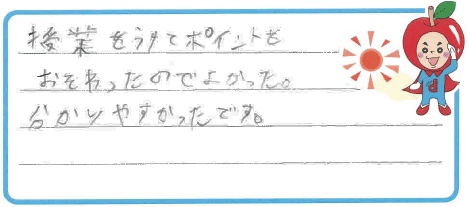 授業をうけてポイントを
おそわったのでよかった。
分かりやすかったです。